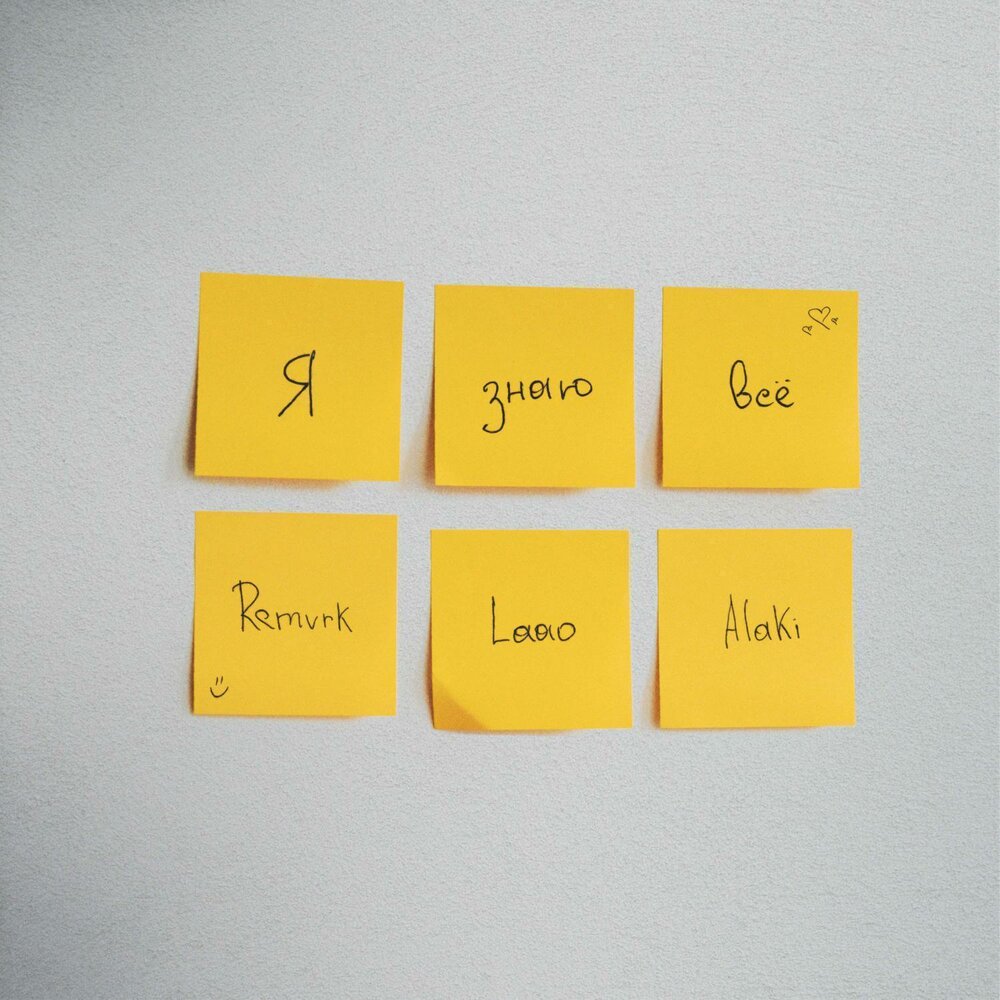 Я знаю всё
Remvrk Laao Alaki